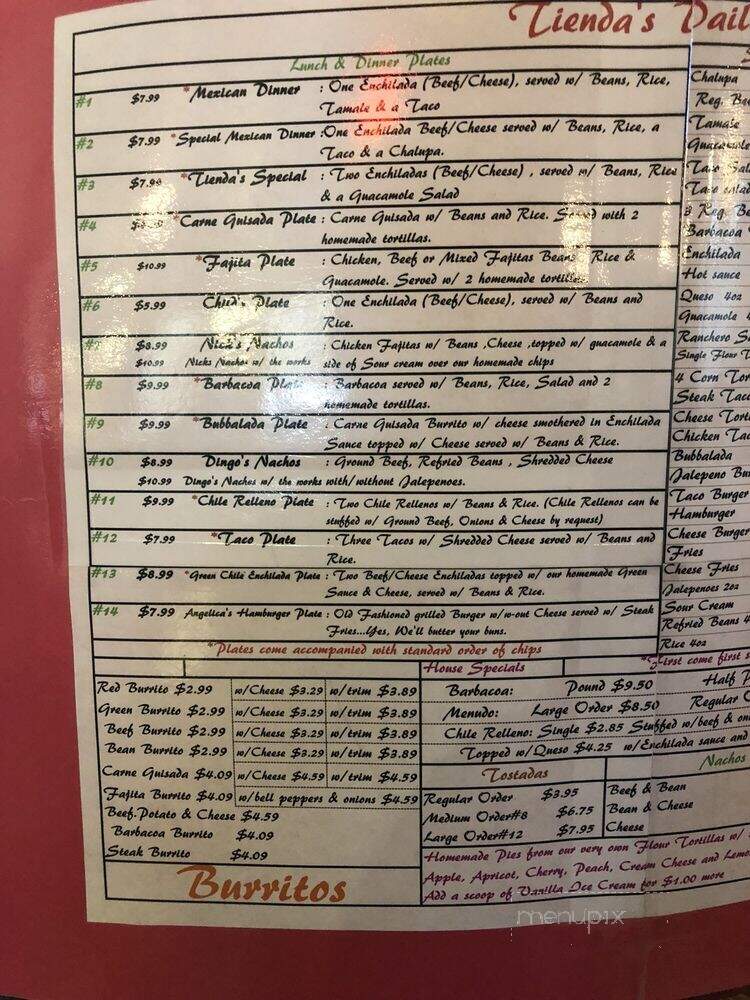 Tienda's
Lunch & Dinner Plates
#1 $7.99 *Mexican Dinner : One Enchilada (Beef/Cheese), served w/ Beans, Rice,
Tamale & a Taco
#2 $7.99 *Special Mexican Dinner :One Enchilada Beef/Cheese served w/ Beans, Rice, a
Taco & a Chalupa.
#3 $7.99 *Tienda's Special : Two Enchiladas (Beef/Cheese) , served w/ Beans, Rice
& a Guacamole Salad
#4 *Carne Guisada Plate : Carne Guisada w/ Beans and Rice. Served with 2
homemade tortillas.
#5 $10.99 *Fajita Plate : Chicken, Beef or Mixed Fajitas Beans Rice &
Guacamole. Served w/ 2 homemade tortillas
#6 $5.99 Child's Plate : One Enchilada (Beef/Cheese), served w/ Beans and
Rice.
#7 $8.99 Nick's Nachos : Chicken Fajitas w/ Beans ,Cheese ,topped w/ guacamole & a
$10.99 Nicks Nachos w/ the works side of Sour cream over our homemade chips
#8 $9.99 *Barbacoa Plate : Barbacoa served w/ Beans, Rice, Salad and 2
homemade tortillas.
#9 $9.99 *Bubbalada Plate : Carne Guisada Burrito w/ cheese smothered in Enchilada
Sauce topped w/ Cheese served w/ Beans & Rice.
#10 $8.99 Dingo's Nachos : Ground Beef, Refried Beans , Shredded Cheese
$10.99 Dingo's Nachos w/ the works with/without Jalepenoes.
#11 $9.99 *Chile Relleno Plate : Two Chile Rellenos w/ Beans & Rice. (Chile Rellenos can be
stuffed w/ Ground Beef, Onions & Cheese by request)
#12 $7.99 *Taco Plate : Three Tacos w/ Shredded Cheese served w/ Beans and
Rice.
#13 $8.99 *Green Chile Enchilada Plate : Two Beef/Cheese Enchiladas topped w/ our homemade Green
Sauce & Cheese, served w/ Beans & Rice.
#14 $7.99 Angelica's Hamburger Plate : Old Fashioned grilled Burger w/w-out Cheese served w/ Steak
Fries...Yes, We'll butter your buns.
*Plates come accompanied with standard order of chips
Chalupa
Reg.
Tamale
Guacamole
Taco
Taco salad
3 Reg.
Barbacoa
Enchilada
Hot sauce
Queso 4oz
Guacamole
Ranchero
Single Flour
4 Corn
Steak Taco
Cheese
Chicken
Bubbalada
Jalepeno
Taco Burger
Hamburger
Cheese Burger
Fries
Cheese Fries
Jalepenoes 2oz
Sour Cream
Refried Beans
Rice 4oz
Red Burrito $2.99 w/Cheese $3.29 w/trim $3.89
Green Burrito $2.99 w/Cheese $3.29 w/trim $3.89
Beef Burrito $2.99 w/Cheese $3.29 w/trim $3.89
Bean Burrito $2.99 w/Cheese $3.29 w/trim $3.89
Carne Guisada $4.09 w/Cheese $4.59 w/trim $4.59
Fajita Burrito $4.09 w/bell peppers & onions $4.59
Beef-Potato & Cheese $4.59
Barbacoa Burrito $4.09
Steak Burrito $4.09
Burritos
House Specials *First come first
Barbacoa: Pound $9.50 Half
Menudo: Large Order $8.50 Regular
Chile Relleno: Single $2.85 Stuffed w/beef &
Topped w/Queso $4.25 w/Enchilada sauce and
Tostadas
Regular Order $3.95
Medium Order#8 $6.75
Large Order#12 $7.95
Nachos
Beef & Bean
Bean & Cheese
Cheese
Homemade Pies from our very own Flour Tortillas w/
Apple, Apricot, Cherry, Peach, Cream Cheese and
Add a scoop of Vanilla Ice Cream for $1.00 more
menupix